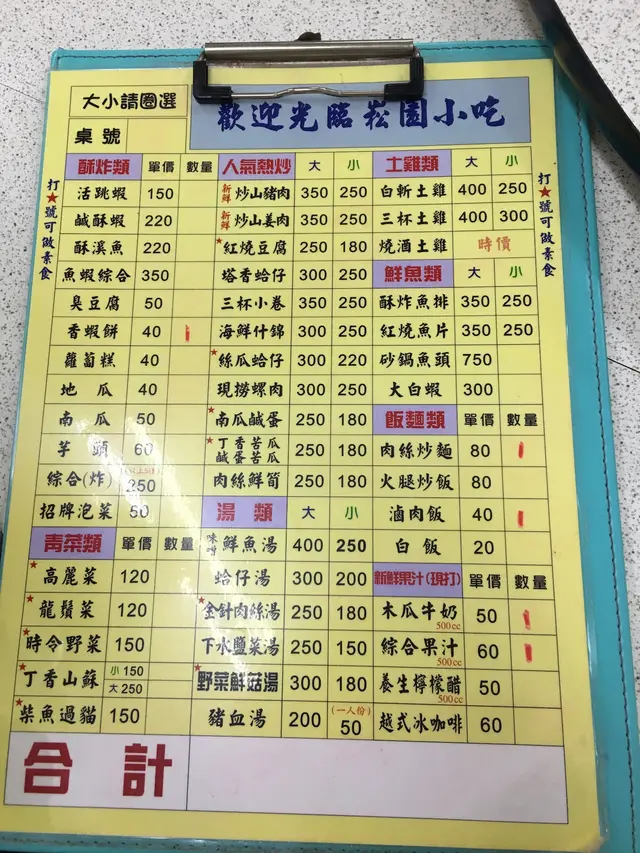 大小請圈選
歡迎光臨菘園小吃
桌號
打★號可做素食
酥炸類 單價 數量
活跳蝦 150
鹹酥蝦 220
酥溪魚 220
魚蝦綜合 350
臭豆腐 50
香蝦餅 40
蘿蔔糕 40
地瓜 40
南瓜 50
芋頭 60
綜合(炸) 250
招牌泡菜 50
青菜類 單價 數量
★高麗菜 120
★龍鬚菜 120
★時令野菜 150
★丁香山蘇 小150 大250
★柴魚過貓 150
人氣熱炒 大 小
新鮮 炒山豬肉 350 250
新鮮 炒山羌肉 350 250
★紅燒豆腐 250 180
塔香蛤仔 300 250
三杯小卷 350 250
海鮮什錦 300 250
★絲瓜蛤仔 300 220
現撈螺肉 300 250
★南瓜鹹蛋 250 180
★丁香苦瓜
鹹蛋苦瓜 250 180
肉絲鮮筍 250 180
湯類 大 小
味噌 鮮魚湯 400 250
蛤仔湯 300 200
★金針肉絲湯 250 180
下水鹽菜湯 250 150
★野菜鮮菇湯 300 180
豬血湯 200 (一人份) 50
土雞類 大 小
白斬土雞 400 250
三杯土雞 400 300
燒酒土雞 時價
鮮魚類 大 小
酥炸魚排 350 250
紅燒魚片 350 250
砂鍋魚頭 750
大白蝦 300
飯麵類 單價 數量
肉絲炒麵 80
火腿炒飯 80
滷肉飯 40
白飯 20
新鮮果汁(現打) 單價 數量
木瓜牛奶 500cc 50
綜合果汁 500cc 60
養生檸檬醋 500cc 50
越式冰咖啡 60
打★號可做素食
合計